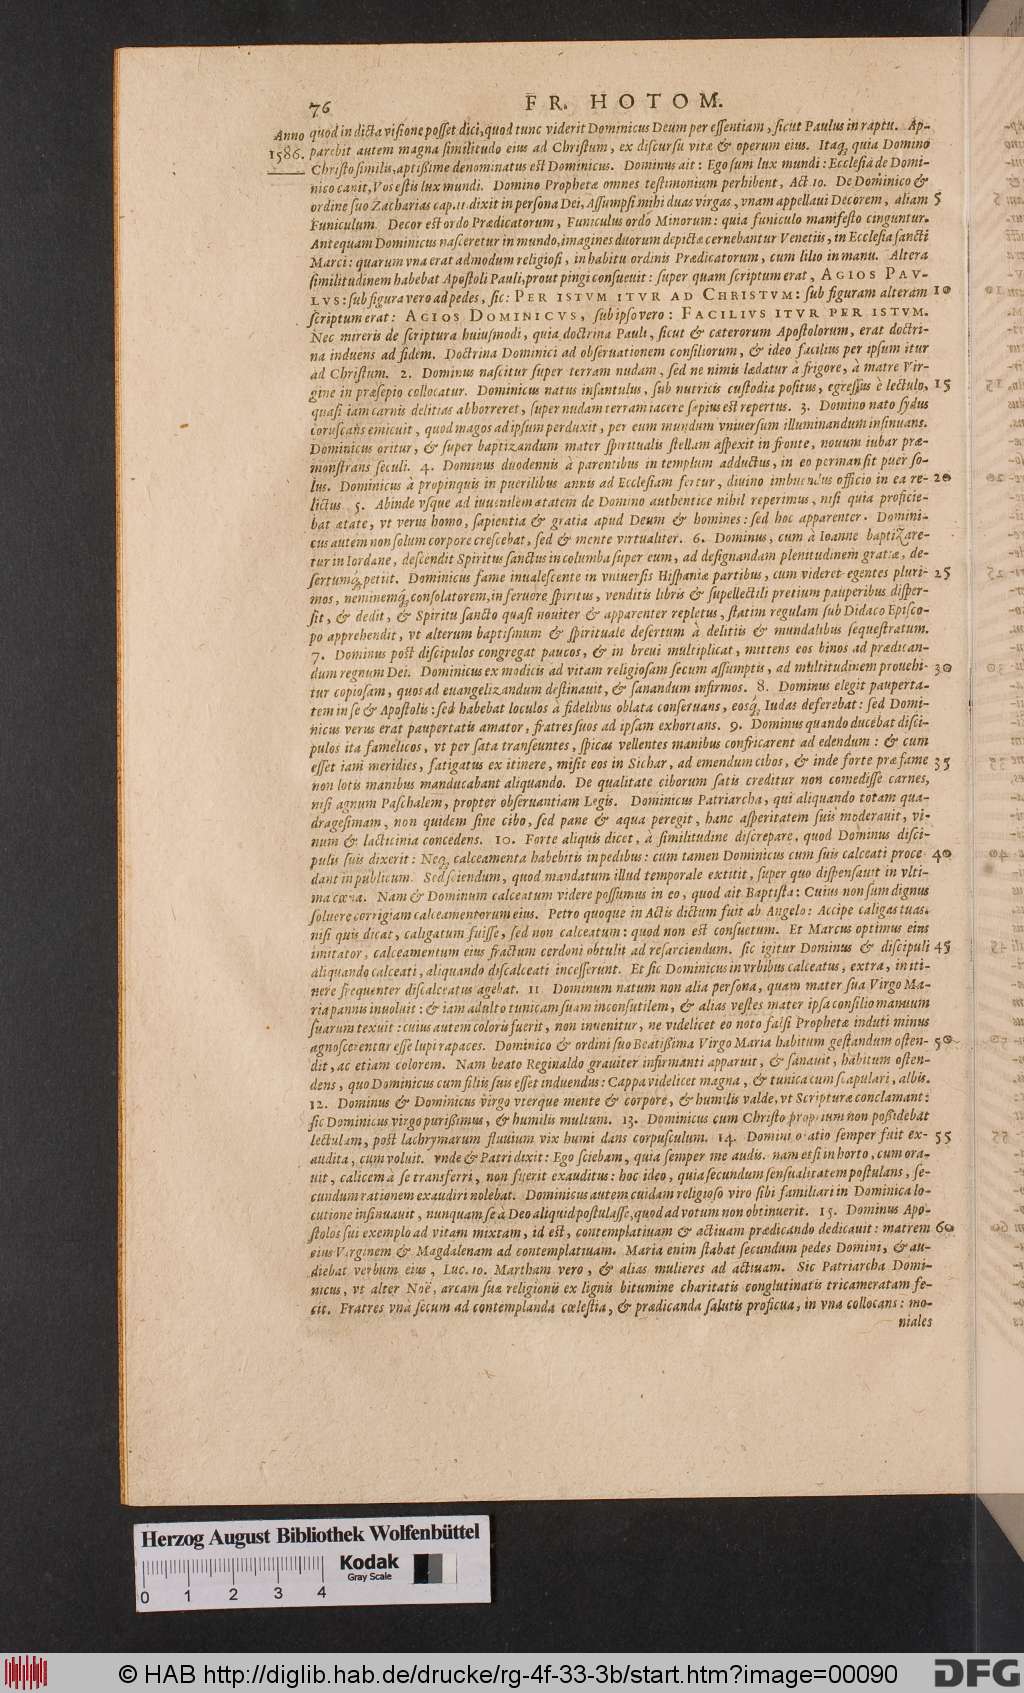 76 FR. HOTOM.
Anno quod in dicta visione posset dici, quod tunc viderit Dominicus Deum per essentiam, sicut Paulus in raptu. Ap-
1586. parebit autem magna similitudo eius ad Christum, ex discursu vitæ & operum eius. Itaq, quia Domino
Christo similis, aptißime denominatus est Dominicus. Dominus ait: Ego sum lux mundi: Ecclesia de Domi-
nico canit, Vos estis lux mundi. Domino Prophetæ omnes testimonium perhibent, Act. 10. De Dominico &
ordine suo Zacharias cap. 11. dixit in persona Dei, Assumpsi mihi duas virgas, vnam appellaui Decorem, aliam 5
Funiculum. Decor est ordo Prædicatorum, Funiculus ordo Minorum: quia funiculo manifesto cinguntur.
Antequam Dominicus nasceretur in mundo, imagines duorum depictæ cernebantur Venetiis, in Ecclesia sancti
Marci: quarum vna erat admodum religiosi, in habitu ordinis Prædicatorum, cum lilio in manu. Altera
similitudinem habebat Apostoli Pauli, prout pingi consueuit: super quam scriptum erat, AGIOS PAV-
LVS: sub figura vero ad pedes, sic: PER ISTVM ITVR AD CHRISTVM: sub figuram alteram 10
scriptum erat: AGIOS DOMINICVS, sub ipso vero: FACILIVS ITVR PER ISTVM.
Nec mireris de scriptura huiusmodi, quia doctrina Pauli, sicut & cæterorum Apostolorum, erat doctri-
na induens ad fidem. Doctrina Dominici ad obseruationem consiliorum, & ideo facilius per ipsum itur
ad Christum. 2. Dominus nascitur super terram nudam, sed ne nimis lædatur à frigore, à matre Vir-
gine in præsepio collocatur. Dominicus natus infantulus, sub nutricis custodia positus, egressus è lectulo, 15
quasi iam carnis delitias abhorreret, super nudam terram iacere sæpius est repertus. 3. Domino nato sydus
coruscans emicuit, quod magos ad ipsum perduxit, per eum mundum vniuersum illuminandum insinuans.
Dominicus oritur, & super baptizandum mater spiritualis stellam aspexit in fronte, nouum iubar præ-
monstrans seculi. 4. Dominus duodennis à parentibus in templum adductus, in eo permansit puer so-
lus. Dominicus à propinquis in puerilibus annis ad Ecclesiam fertur, diuino imbuendus officio in ea re- 20
lictus. 5. Abinde vsque ad iuuenilem ætatem de Domino authentice nihil reperimus, nisi quia proficie-
bat ætate, vt verus homo, sapientia & gratia apud Deum & homines: sed hoc apparenter. Domini-
cus autem non solum corpore crescebat, sed & mente virtualiter. 6. Dominus, cum à Ioanne baptizare-
tur in Iordane, descendit Spiritus sanctus in columba super eum, ad designandam plenitudinem gratiæ, de-
sertumq, petiit. Dominicus fame inualescente in vniuersis Hispaniæ partibus, cum videret egentes pluri- 25
mos, neminemq, consolatorem, in feruore spiritus, venditis libris & supellectili pretium pauperibus disper-
sit, & dedit, & Spiritu sancto quasi nouiter & apparenter repletus, statim regulam sub Didaco Episco-
po apprehendit, vt alterum baptismum & spirituale desertum à delitiis & mundalibus sequestratum.
7. Dominus post discipulos congregat paucos, & in breui multiplicat, mittens eos binos ad prædican-
dum regnum Dei. Dominicus ex modicis ad vitam religiosam secum assumptis, ad multitudinem prouehi- 30
tur copiosam, quos ad euangelizandum destinauit, & sanandum infirmos. 8. Dominus elegit pauperta-
tem in se & Apostolis: sed habebat loculos à fidelibus oblata conseruans, eosq, Iudas deferebat: sed Domi-
nicus verus erat paupertatis amator, fratres suos ad ipsam exhortans. 9. Dominus quando ducebat disci-
pulos ita famelicos, vt per sata transeuntes, spicas vellentes manibus confricarent ad edendum: & cum
esset iam meridies, fatigatus ex itinere, misit eos in Sichar, ad emendum cibos, & inde forte præ fame 35
non lotis manibus manducabant aliquando. De qualitate ciborum satis creditur non comedisse carnes,
nisi agnum Paschalem, propter obseruantiam Legis. Dominicus Patriarcha, qui aliquando totam qua-
dragesimam, non quidem sine cibo, sed pane & aqua peregit, hanc asperitatem suis moderauit, vi-
num & lacticinia concedens. 10. Forte aliquis dicet, à similitudine discrepare, quod Dominus disci-
pulis suis dixerit: Neq, calceamenta habebitis in pedibus: cum tamen Dominicus cum suis calceati proce- 40
dant in publicum. Sed sciendum, quod mandatum illud temporale extitit, super quo dispensauit in vlti-
ma cœna. Nam & Dominum calceatum videre possumus in eo, quod ait Baptista: Cuius non sum dignus
soluere corrigiam calceamentorum eius. Petro quoque in Actis dictum fuit ab Angelo: Accipe caligas tuas.
nisi quis dicat, caligatum fuisse, sed non calceatum: quod non est consuetum. Et Marcus optimus eius
imitator, calceamentum eius fractum cerdoni obtulit ad resarciendum. sic igitur Dominus & discipuli 45
aliquando calceati, aliquando discalceati incesserunt. Et sic Dominicus in vrbibus calceatus, extra, in iti-
nere frequenter discalceatus agebat. 11. Dominum natum non alia persona, quam mater sua Virgo Ma-
ria pannis inuoluit: & iam adulto tunicam suam inconsutilem, & alias vestes mater ipsa consilio manuum
suarum texuit: cuius autem coloris fuerit, non inuenitur, ne videlicet eo noto falsi Prophetæ induti minus
agnoscerentur esse lupi rapaces. Dominico & ordini suo Beatißima Virgo Maria habitum gestandum osten- 50
dit, ac etiam colorem. Nam beato Reginaldo grauiter infirmanti apparuit, & sanauit, habitum osten-
dens, quo Dominicus cum filiis suis esset induendus: Cappa videlicet magna, & tunica cum scapulari, albis.
12. Dominus & Dominicus virgo vterque mente & corpore, & humilis valde, vt Scripturæ conclamant:
sic Dominicus virgo purißimus, & humilis multum. 13. Dominicus cum Christo proprium non poßidebat
lectulum, post lachrymarum fluuium vix humi dans corpusculum. 14. Domini oratio semper fuit ex- 55
audita, cum voluit. vnde & Patri dixit: Ego sciebam, quia semper me audis. nam etsi in horto, cum ora-
uit, calicem à se transferri, non fuerit exauditus: hoc ideo, quia secundum sensualitatem postulans, se-
cundum rationem exaudiri nolebat. Dominicus autem cuidam religioso viro sibi familiari in Dominica lo-
cutione insinuauit, nunquam se à Deo aliquid postulasse, quod ad votum non obtinuerit. 15. Dominus Apo-
stolos sui exemplo ad vitam mixtam, id est, contemplatiuam & actiuam prædicando dedicauit: matrem 60
eius Virginem & Magdalenam ad contemplatiuam. Maria enim stabat secundum pedes Domini, & au-
diebat verbum eius, Luc. 10. Martham vero, & alias mulieres ad actiuam. Sic Patriarcha Domi-
nicus, vt alter Noë, arcam suæ religionis ex lignis bitumine charitatis conglutinatis tricameratam fe-
cit. Fratres vna secum ad contemplanda cœlestia, & prædicanda salutis proficua, in vna collocans: mo-
niales
Herzog August Bibliothek Wolfenbüttel
Kodak
Gray Scale
0 1 2 3 4
© HAB http://diglib.hab.de/drucke/rg-4f-33-3b/start.htm?image=00090
DFG